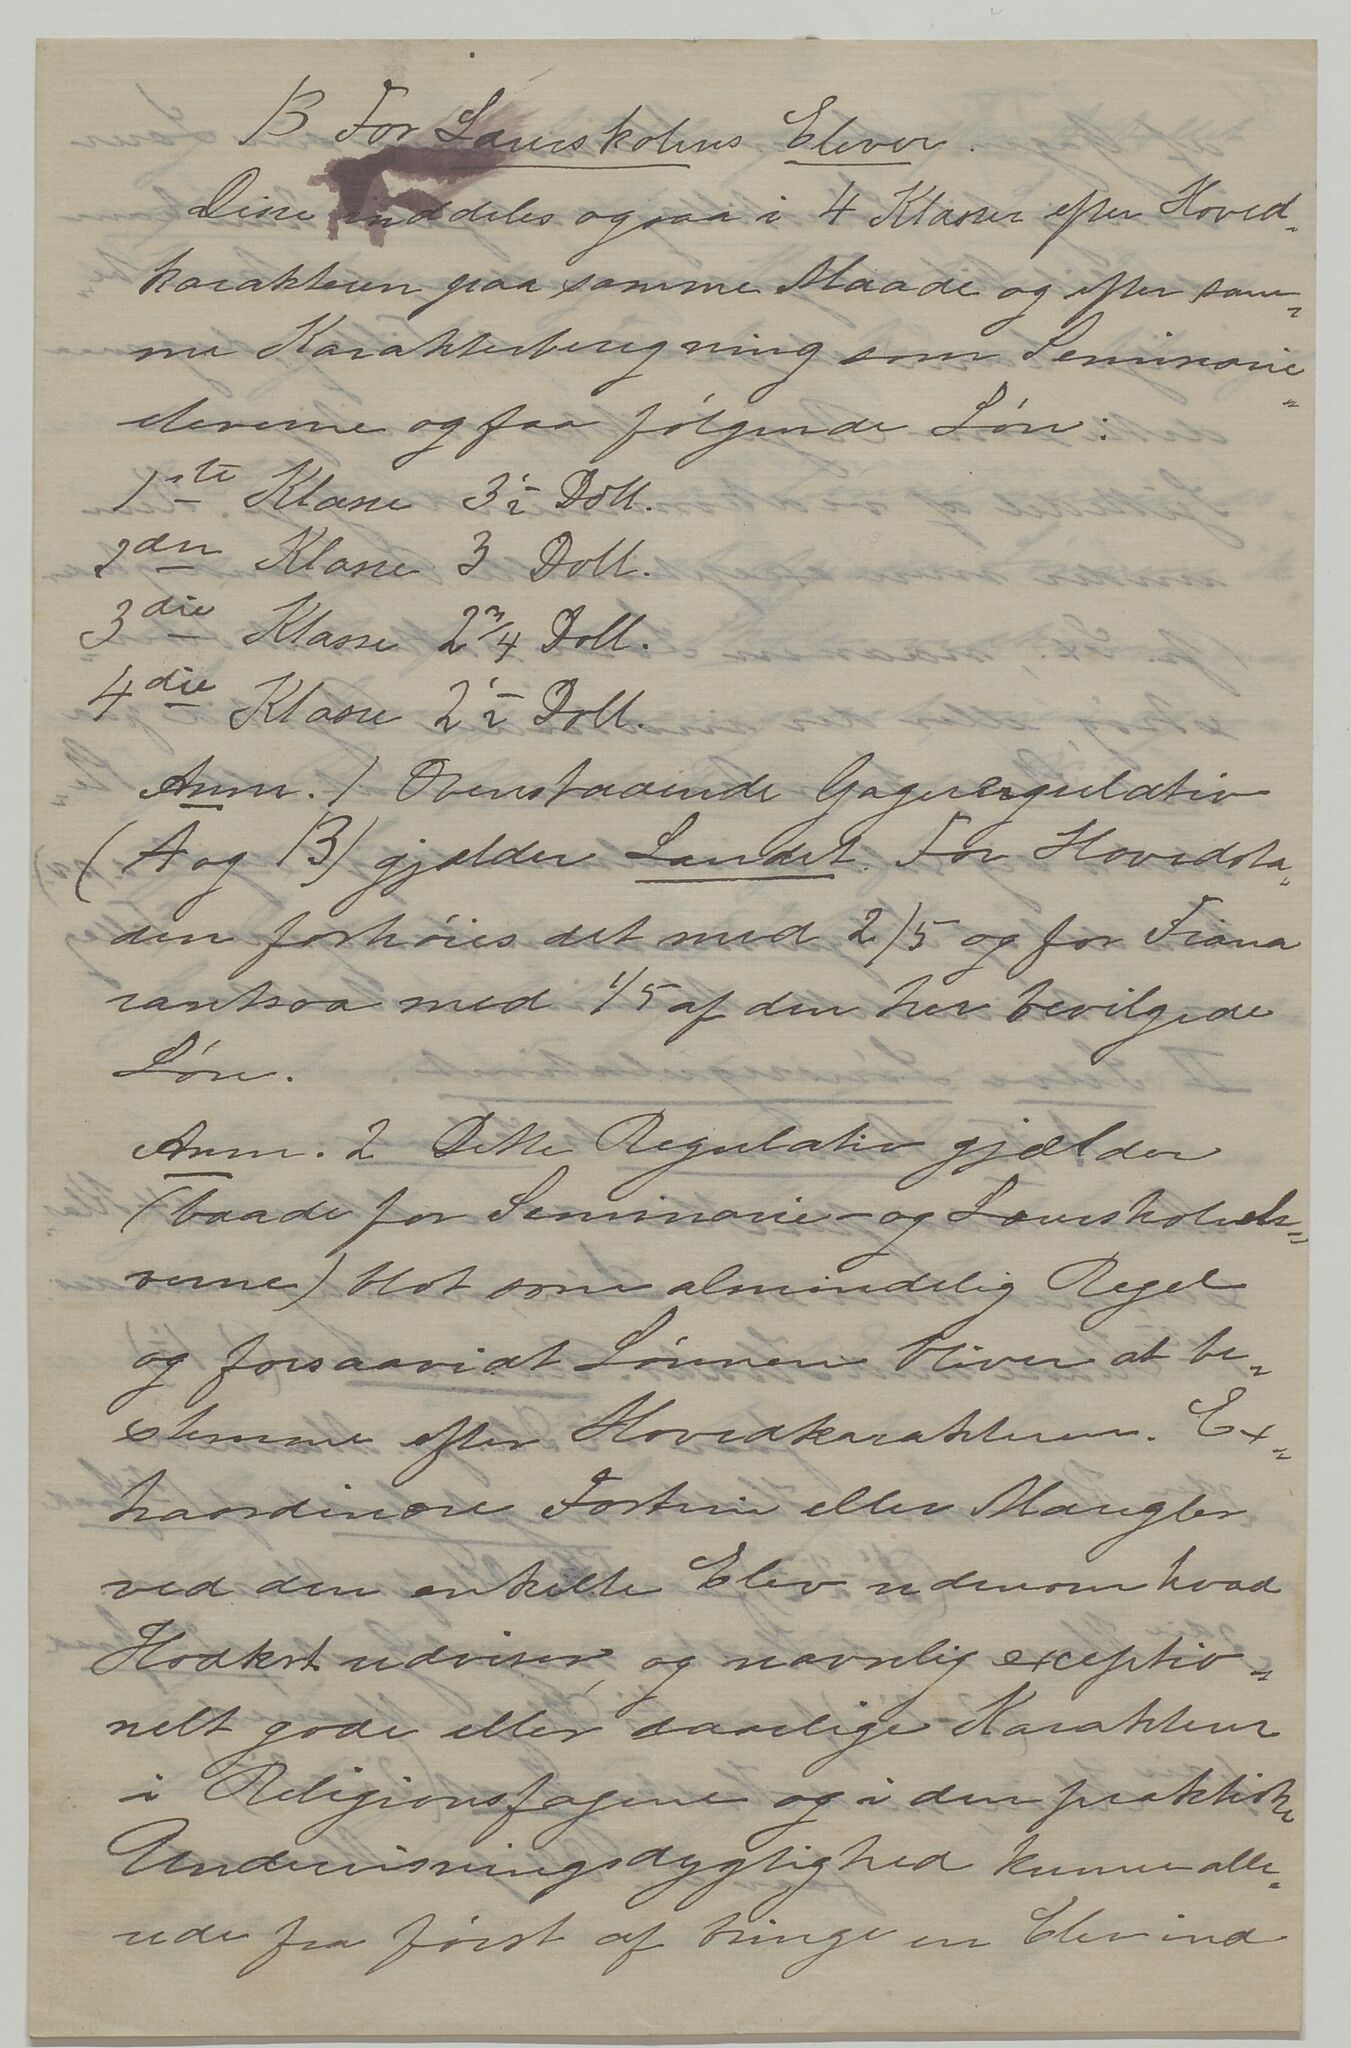 B For Læreskolens Elever.
Disse inddeles ogsaa i 4 Klasser efter Hoved-
karakteren paa samme Maade og efter sam-
me Karakterberegning som Seminarie-
eleverne og faa følgende Løn:
1ste Klasse 3½ Doll.
2den Klasse 3 Doll.
3die Klasse 2¾ Doll.
4die Klasse 2½ Doll.
Anm. 1 Ovenstaaende Gageregulativ
(A og B) gjælder Landet. For Hovedsta-
den forhøies det med 2/5 og for Fiana
rantsoa med 1/5 af den her bevilgede
Løn.
Anm. 2 Dette Regulativ gjælder
(baade for Seminarie- og Læreskolele-
verne) blot som almindelig Regel
og forsaavidt Lønnen bliver at be-
stemme efter Hovedkarakteren. Ex-
traordinære Fortrin eller Mangler
ved den enkelte Elev udenom hvad
Hodkrt udviser, og navnlig exceptio-
nelt gode eller daarlige Karakterer
i Religionsfagene og i den praktiske
Undervisningsdygtighed kunne alle-
rede fra først af bringe en Elev ind